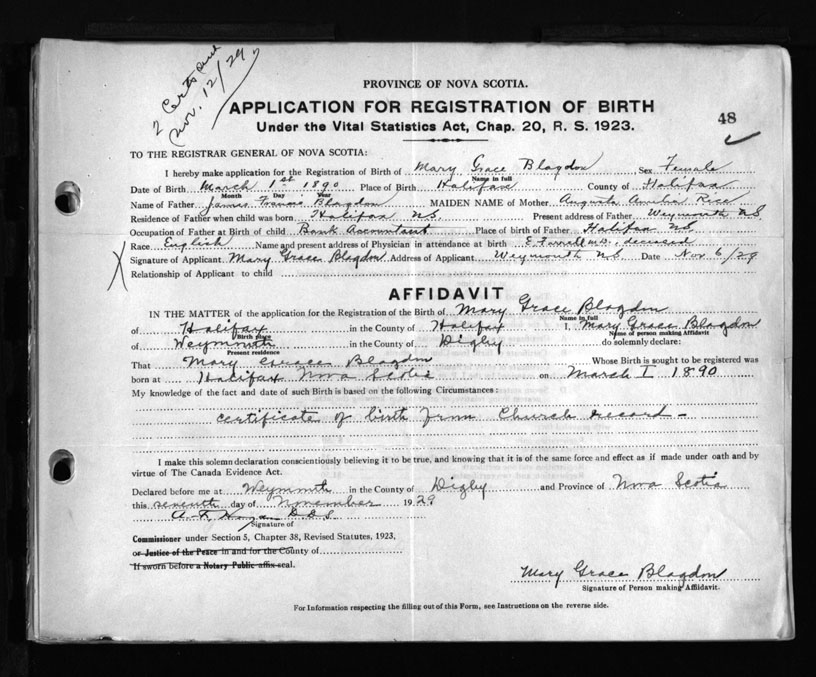 2 Certs sent
Nov. 12/29
PROVINCE OF NOVA SCOTIA.
APPLICATION FOR REGISTRATION OF BIRTH
48
Under the Vital Statistics Act, Chap. 20, R. S. 1923.
TO THE REGISTRAR GENERAL OF NOVA SCOTIA:
I hereby make application for the Registration of Birth of Mary Grace Blagdon Sex Female
Name in full
Date of Birth March 1st 1890 Place of Birth Halifax County of Halifax
Month Day Year
Name of Father James Francis Blagdon MAIDEN NAME of Mother Augusta Amelia Rice
Residence of Father when child was born Halifax NS Present address of Father Weymouth NS
Occupation of Father at Birth of child Bank Accountant Place of birth of Father Halifax NS
Race English Name and present address of Physician in attendance at birth E. Farrell M.D. deceased
Signature of Applicant Mary Grace Blagdon Address of Applicant Weymouth NS Date Nov 6/29
Relationship of Applicant to child
AFFIDAVIT
IN THE MATTER of the application for the Registration of the Birth of Mary Grace Blagdon
Name in full
of Halifax in the County of Halifax I, Mary Grace Blagdon
Birth place Name of person making Affidavit
of Weymouth in the County of Digby do solemnly declare:
Present residence
That Mary Grace Blagdon Whose Birth is sought to be registered was
born at Halifax Nova Scotia on March I 1890
My knowledge of the fact and date of such Birth is based on the following Circumstances:
certificate of birth from Church record -
I make this solemn declaration conscientiously believing it to be true, and knowing that it is of the same force and effect as if made under oath and by
virtue of The Canada Evidence Act.
Declared before me at Weymouth in the County of Digby and Province of Nova Scotia
this seventh day of November 1929
Signature of
Commissioner under Section 5, Chapter 38, Revised Statutes, 1923,
or Justice of the Peace in and for the County of
If sworn before a Notary Public affix seal.
Mary Grace Blagdon
Signature of Person making Affidavit.
For Information respecting the filling out of this Form, see Instructions on the reverse side.